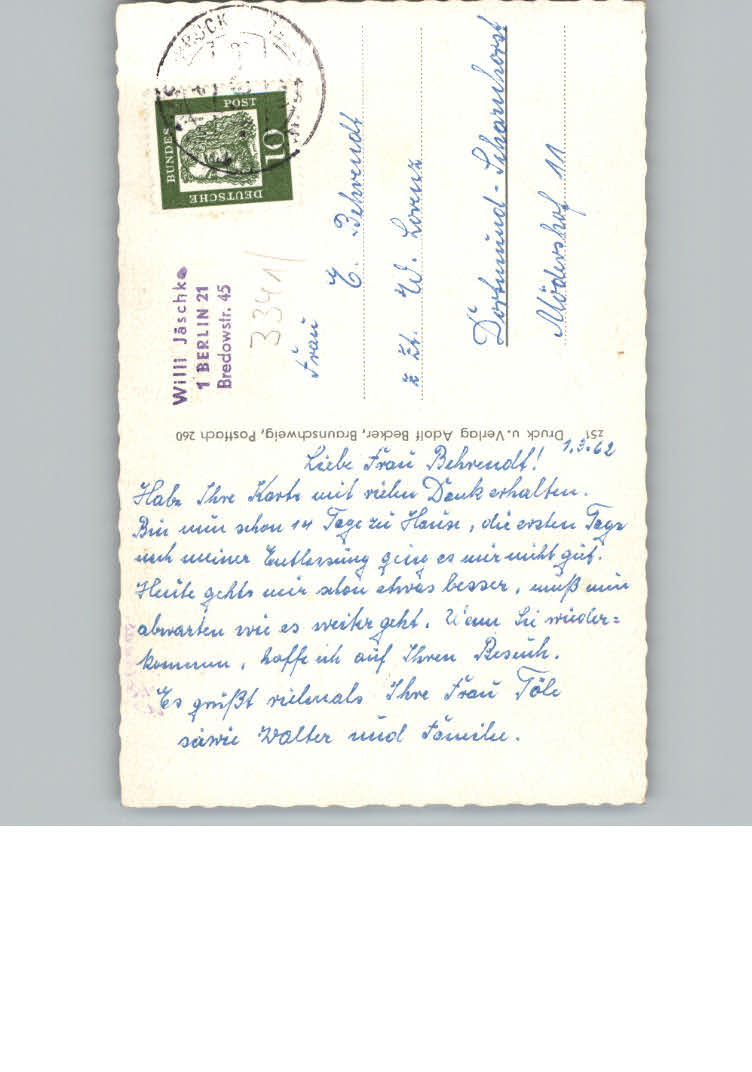 1.3.62
Liebe Frau Behrendt!
Habe Ihre Karte mit vielen Dank erhalten.
Bin nun schon 14 Tage zu Hause, die ersten Tage
nach meiner Entlassung ging es mir nicht gut.
Heute gehts mir schon etwas besser, muß nun
abwarten wie es weiter geht. Wenn Sie wieder=
kommen, hoffe ich auf Ihren Besuch.
Es grüßt vielmals Ihre Frau Töle
sowie Walter und Familie.
Frau
E. Behrendt
z Zt. W. Lorenz
Dortmund-Scharnhorst
Mödershof 11
DEUTSCHE
BUNDES
POST
10
Willi Jäschke
1 BERLIN 21
Bredowstr. 45
3341/
z51 Druck u. Verlag Adolf Becker, Braunschweig, Postfach 260